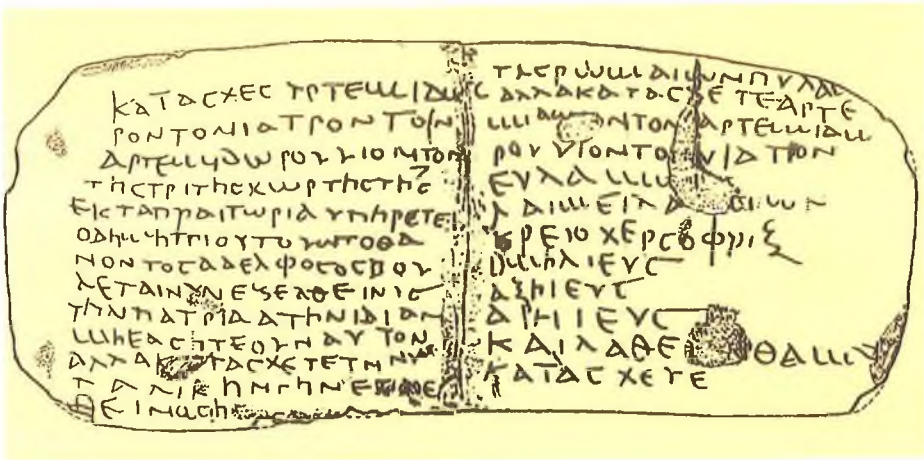 ΚΑΤΑCΧΕC ΥΡΤΕΜΙΔω
ΡΟΝΤΟΝΙΑΤΡΟΝΤΟΝ
ΑΡΤΕΜΥΔωΡΟΥΥΙΟΝΤΟΝ
ΤΗCΤΡΙΤΗCΧωΡΤΗCΤΗC
ΕΙCΤΑΠΡΑΙΤωΡΙΑΥΠΗΡΕΤΕΙ
ΟΔΗΜΗΤΡΙΟΥΤΟΥΝΤΟΘΑ
ΝΟΝΤΟCΑΔΕΛΦΟCΟCΒΟΥ
ΛΕΤΑΙΝΥΝΕΞΕΛΘΕΙΝΙC
ΤΗΝΠΑΤΡΙΔΑΤΗΝΙΔΙΑΝ
ΜΗΕΑCΗΤΕΟΥΝΑΥΤΟΝ
ΑΛΛΑΚΑΤΑCΧΕΤΕΤΗΝ
ΤΑΛΙΚΗΝΓΗΝ
ΤΗCΡωΜΑΙωΝΠΥΛΑC
ΑΛΛΑΚΑΤΑCΧΕΤΕΑΡΤΕ
ΟΝΤΟΝ ΑΡΤΕΜΙΔω
ΡΟΥΥΙΟΝΤΟ ΙΑΤΡΟΝ
ΕΥΛΑΜω
ΛΑΜΕΙΛΑ ΕΙωΝ
ΡΕΙΟΧΕΡCΟΦΡΙΞ
ΛΙΕΥC
ΑΞΗΙΕΥC
ΑΡΗΙΕΥC
ΚΑΙΛΑΘΕ ΘΑΜΥ
ΚΑΤΑCΧΕΤΕ